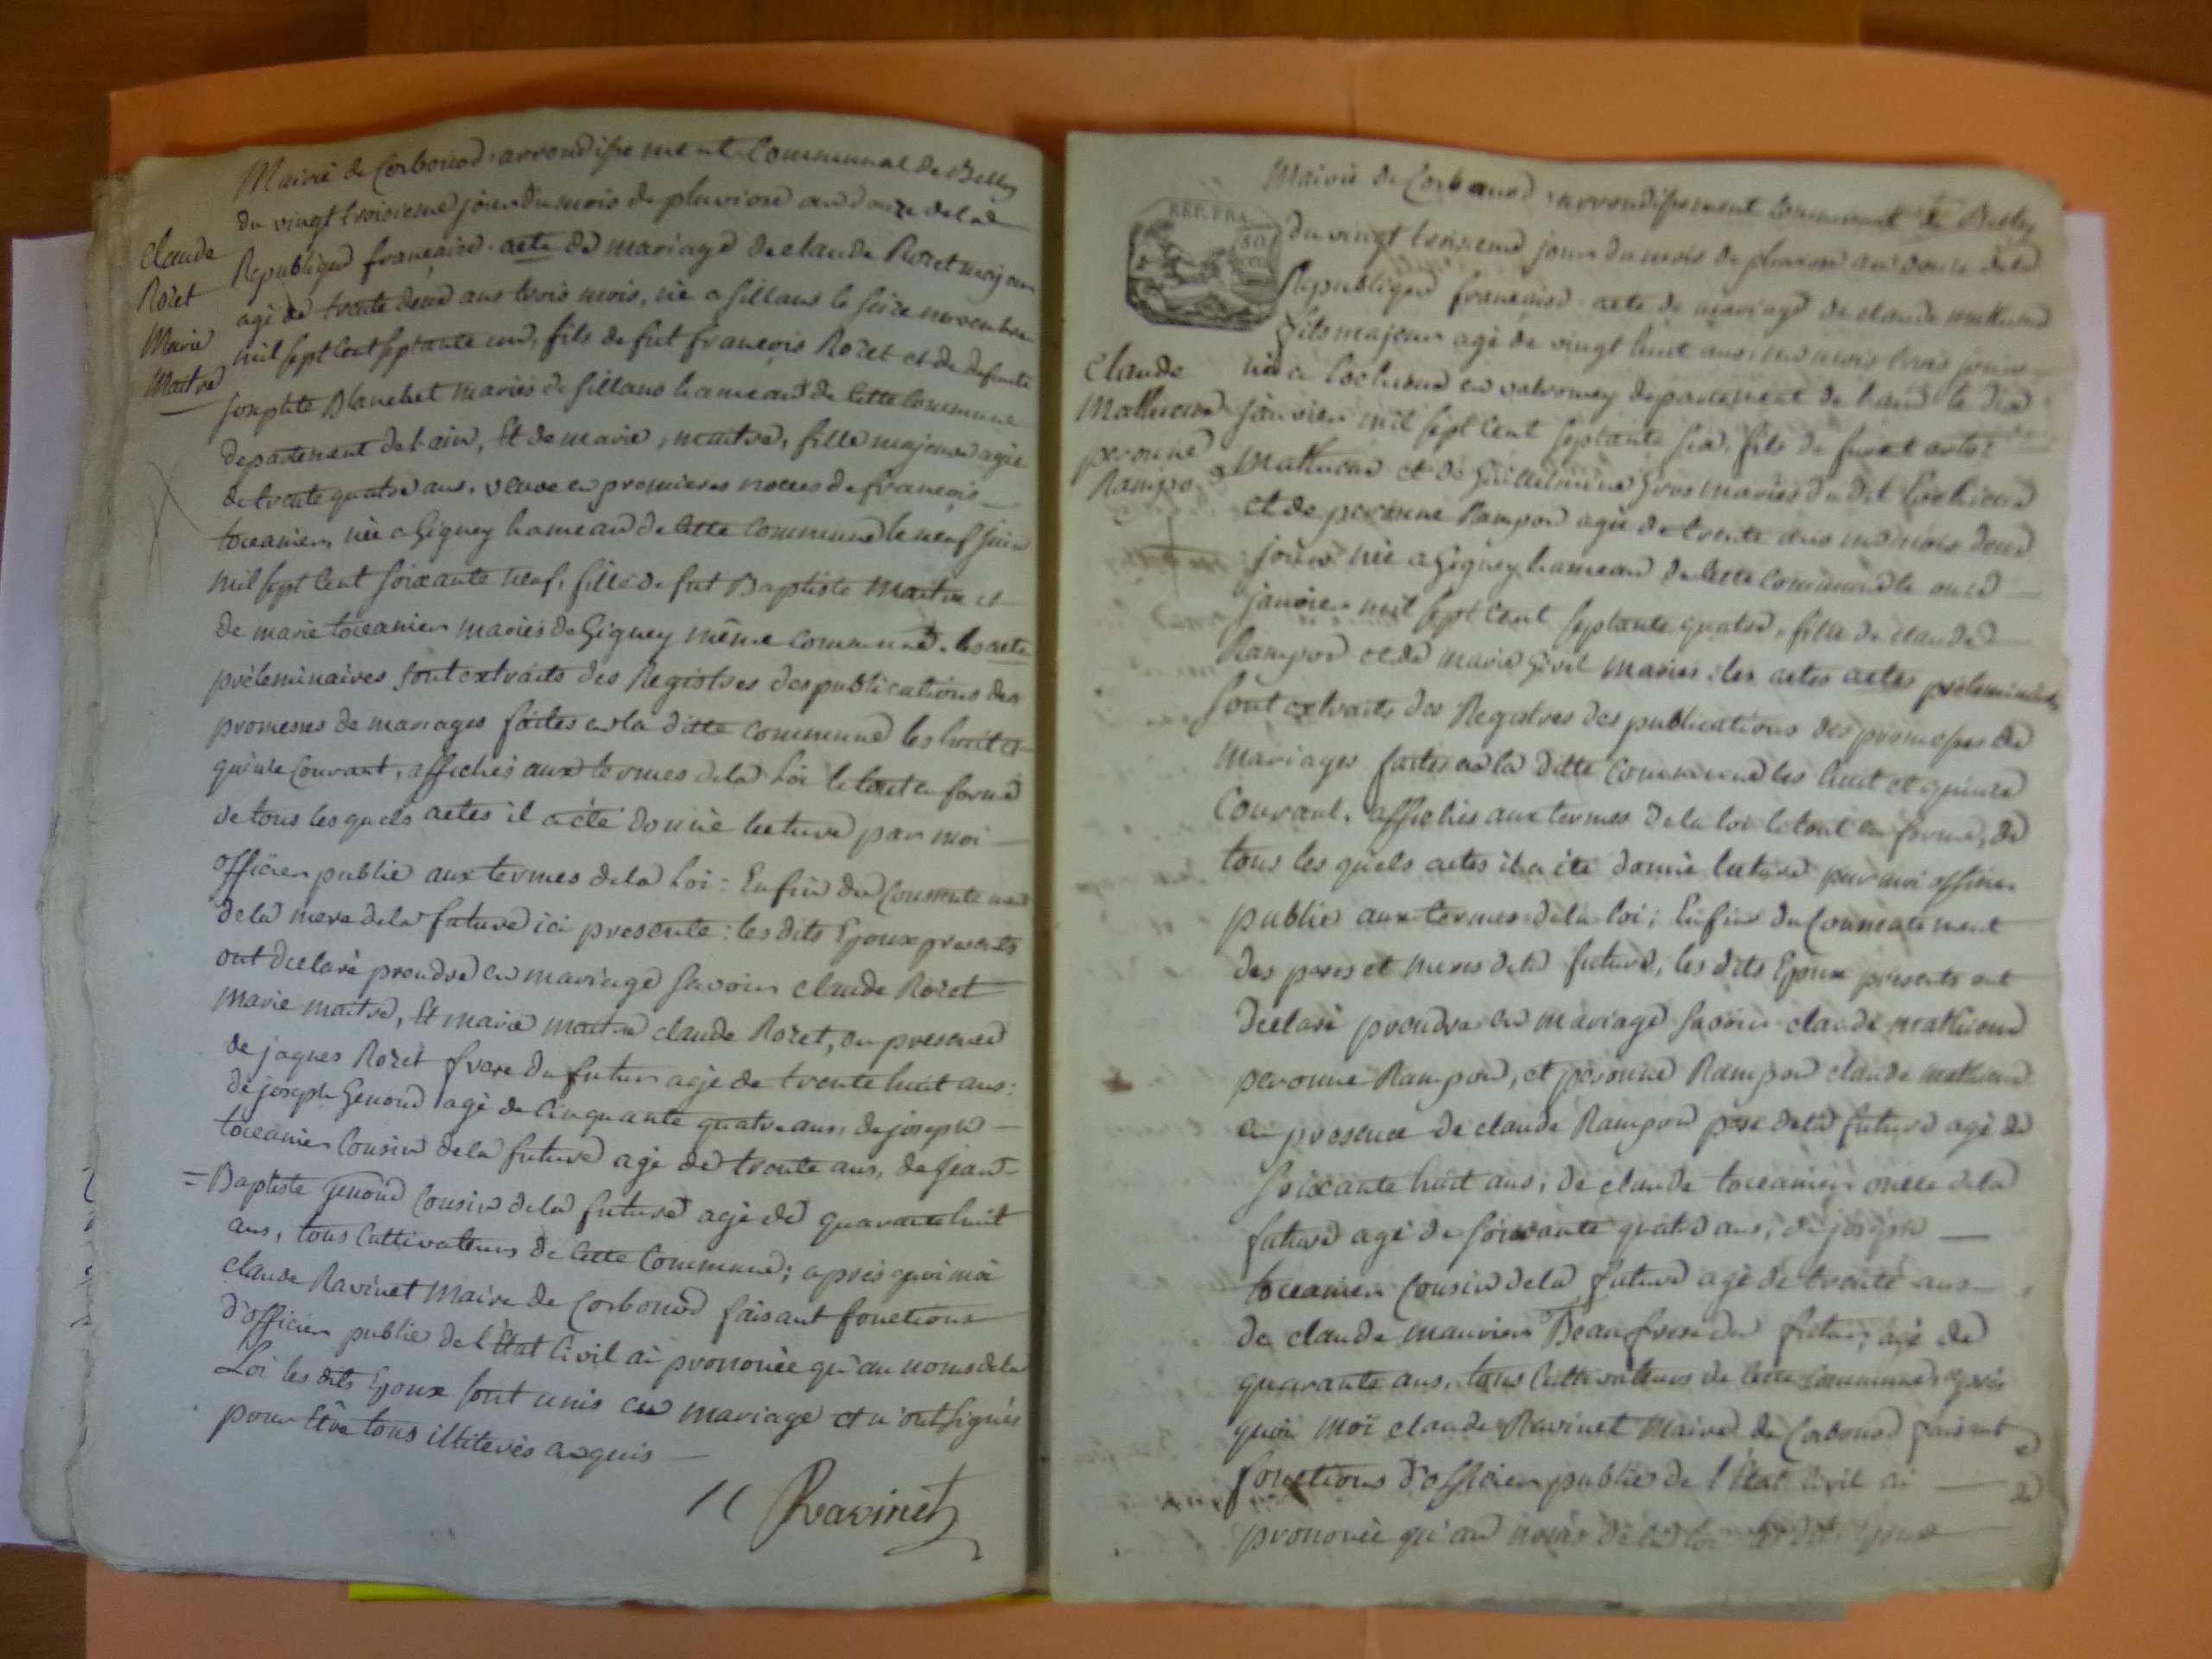 Mairie de Corbonod arrondissement Communal de Belley
du vingt troisieme jour du mois de pluviose an douze de la
Republique française. acte de mariage de claude Rozet majeur
agé de trente deux ans trois mois, né a sillans le seize novembre
mil sept cent septante un, fils de fut françois Rozet et de defunte
Josephte Blanchet mariés de sillans hameau de Cette Commune
departement de l'ain, Et de marie, maitre, fille majeure agée
de trente quatre ans, veuve en premieres noces de françois
tocanier, née a Gigney hameau de Cette Commune le neuf juin
mil sept cent soixante neuf, fille de fut Baptiste Maitre et
de marie tocanier mariés de Gigney même commune. les acte
préleminaires sont extraits des Registres des publications des
promesses de mariages faites en la ditte Commune les huit et
quinze Courant, affichés aux termes de la Loi le tout en forme
de tous les quels actes il a été donné lecture par moi
officier public aux termes de la Loi: Enfin du Consente
de la mere de la future ici presente: les dits Epoux presents
ont declaré prendre en mariage savoir claude Rozet
marie maitre, Et marie maitre claude Rozet, en presence
de jaques Rozet frere du futur agé de trente huit ans:
de joseph Genoud agé de Cinquante quatre ans, de joseph
tocanier Cousin de la future agé de trente ans, de jean
= Baptiste Genoud Cousin de la future agé de quarante huit
ans, tous Cultivateurs de Cette Commune; après quoi moi
claude Ravinet Maire de Corbonod faisant fonctions
d'officier public de l'Etat Civil ai prononcé qu'au nom de la
Loi les dits Epoux sont unis en mariage et n'ont signés
pour être tous illiterés acquis
Ravinet
Claude
Rozet
Marie
Maitre
REP. FRA.
Mairie de Corbonod arrondissement Communal de Belley
du vingt troisieme jour du mois de pluviose an douze de la
Republique française. acte de mariage de claude mathieu
fils majeur agé de vingt huit ans un mois trois jours
né a Lochieu en valromey departement de l'ain le dix
janvier mil sept cent septante six, fils de fut
Mathieu et de Guillelmine Gros mariés du dit Lochieu
et de peronne Rampon agée de trente ans un mois deux
jours née a Gigney hameau de Cette Commune le onze
janvier mil sept cent septante quatre, fille de claude
Rampon et de marie Girel mariés: les actes actes préleminaires
sont extraits des Registres des publications des promesses de
mariages faites en la ditte Commune les huit et quinze
Courant, affichés aux termes de la loi le tout en forme, de
tous les quels actes il a été donné lecture par moi officier
public aux termes de la loi; Enfin du Consentement
des peres et meres de la future, les dits Epoux presents ont
declaré prendre en mariage savoir claude mathieu
peronne Rampon, et peronne Rampon claude mathieu
en presence de claude Rampon pere de la future agé de
soixante huit ans; de claude tocanier oncle de la
future agé de soixante quatre ans; de joseph
tocanier Cousin de la future agé de trente ans
de claude mauvier Beaufrere du futur; agé de
quarante ans, tous Cultivateurs de Cette Commune, après
quoi moi claude Ravinet Maire de Corbonod faisant
fonctions d'officier public de l'Etat Civil ai
prononcé qu'au nom de la loi les dits Epoux
Claude
Mathieu
peronne
Rampon